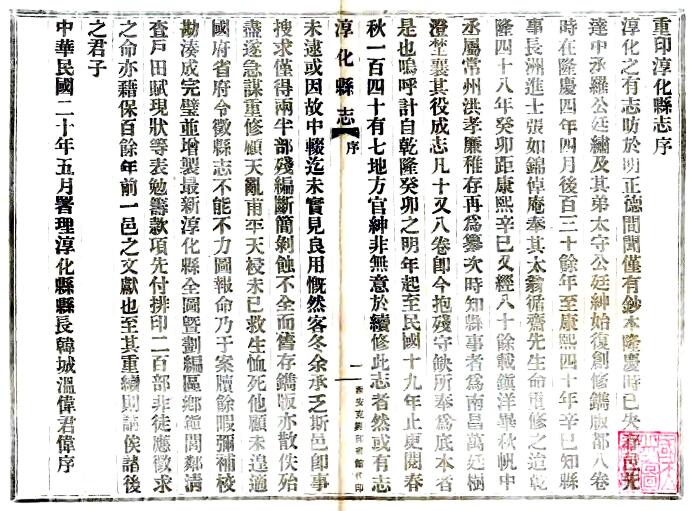 重印淳化縣志序
淳化之有志昉於明正德間聞僅有鈔本隆慶時已失邑先
達中丞羅公廷繡及其弟太守公廷紳始復創修鐫版都八卷
時在隆慶四年四月後百三十餘年至康熙四十年辛巳知縣
事長洲進士張如錦倬庵奉其太翁循齋先生命重修之迨乾
隆四十八年癸卯距康熙辛巳又經八十餘載鎮洋畢秋帆中
丞屬常州洪孝廉稚存再為纂次時知縣事者為南昌萬廷樹
澄埜襄其役成志凡十又八卷卽今抱殘守缺所奉為底本者
是也嗚呼計自乾隆癸卯之明年起至民國十九年止更閱春
秋一百四十有七地方官紳非無意於續修此志者然或有
淳化縣志 序
一 西安克興印書館代印
未逮或因故中輟迄未實見良用慨然客冬余承乏斯邑卽事
搜求僅得兩半部殘編斷簡剝蝕不全而舊存鐫版亦散佚殆
盡遂急謀重修顧天亂甫平天祲未已救生恤死他顧未遑適
國府省府令徵縣志不能不力圖報命乃于案牘餘暇彌補校
勘湊成完璧並增製最新淳化縣全圖暨劃編區鄉鎮閭鄰清
查戶田賦現狀等表勉籌款項先付排印二百部非徒應徵求
之命亦藉保百餘年前一邑之文獻也至其重續則請俟諸後
之君子
中華民國二十年五月署理淳化縣縣長韓城溫偉君偉序